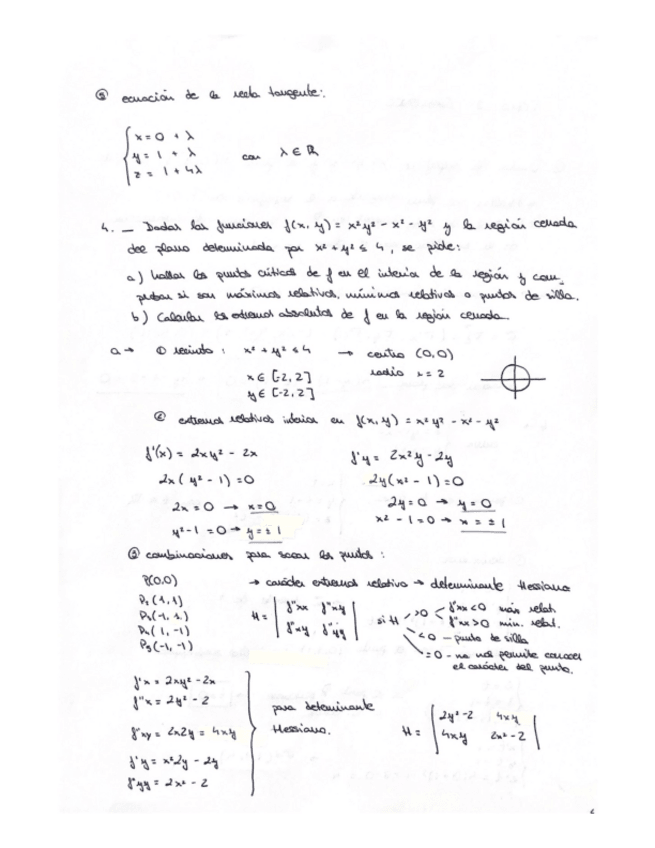 ⑤ ecuación de la recta tangente:
x = 0 + λ
y = 1 + λ
z = 1 + 4λ
con λ ∈ ℝ
4. _ Dadas las funciones f(x, y) = x²y² - x² - y² y la región cerrada
del plano determinada por x² + y² ≤ 4, se pide:
a) Hallar los puntos críticos de f en el interior de la región y com_
probar si son máximos relativos, mínimos relativos o puntos de silla.
b) Calcular los extremos absolutos de f en la región cerrada.
a → ① recinto : x² + y² ≤ 4 → centro (0,0)
x ∈ [-2, 2] radio r = 2
y ∈ [-2, 2]
② extremos relativos interior en f(x, y) = x² y² - x² - y²
f'(x) = 2xy² - 2x f'y = 2x²y - 2y
2x( y² - 1) = 0 2y( x² - 1) = 0
2x = 0 → x = 0 2y = 0 → y = 0
y² - 1 = 0 → y = ± 1 x² - 1 = 0 → x = ± 1
③ combinaciones para sacar los puntos :
P(0,0) → carácter extremos relativo → determinante Hessiano
P₂ (1, 1)
P₃ (-1, 1)
P₄ ( 1, -1)
P₅ (-1, -1)
H = | f''xx f''xy |
| f''xy f''yy |
si H
>0 < f''xx < 0 máx relat.
f''xx > 0 min. relat.
<0 - punto de silla
= 0 - no nos permite conocer
el carácter del punto.
f'x = 2xy² - 2x
f''x = 2y² - 2
f''xy = 2x2y = 4xy
f'y = x²2y - 2y
f''yy = 2x² - 2
para determinante
Hessiano.
H = | 2y² - 2 4xy |
| 4xy 2x² - 2 |